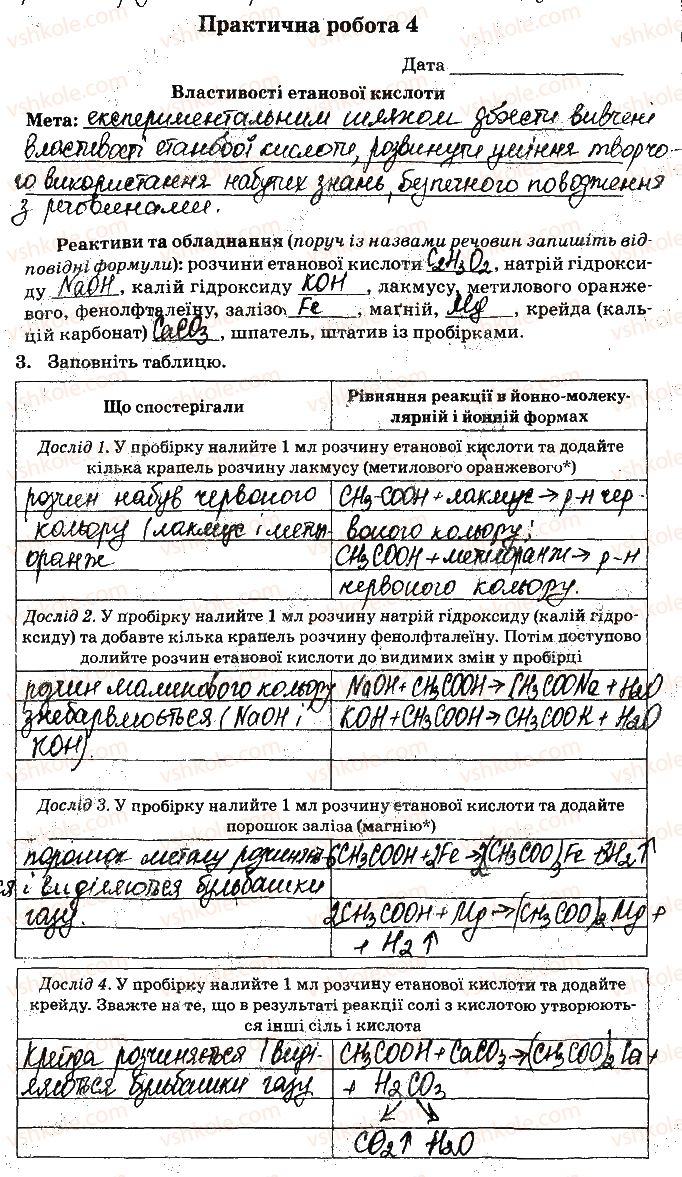 Практична робота 4
Дата
Властивості етанової кислоти
Мета: експериментальним шляхом збжсти вивчені
властивості етанової кислоти, розвинути уміння творчо-
го використання набутих знань, безпечного поводження
з речовинами.
Реактиви та обладнання (поруч із назвами речовин запишіть від-
повідні формули): розчини етанової кислоти C₂H₃O₂, натрій гідрокси-
ду NaOH, калій гідроксиду KOH, лакмусу, метилового оранже-
вого, фенолфталеїну, залізо Fe, магній, Mg, крейда (каль-
цій карбонат) CaCO₃, шпатель, штатив із пробірками.
3. Заповніть таблицю.
Що спостерігали
Рівняння реакції в йонно-молеку-
лярній і йонній формах
Дослід 1. У пробірку налийте 1 мл розчину етанової кислоти та додайте
кілька крапель розчину лакмусу (метилового оранжевого*)
розчин набув червоного
кольору (лакмус і метил-
оранж
CH₃-COOH + лакмус → р-н чер-
воного кольору;
CH₃COOH + метилоранж → р-н
червоного кольору.
Дослід 2. У пробірку налийте 1 мл розчину натрій гідроксиду (калій гідро-
ксиду) та добавте кілька крапель розчину фенолфталеїну. Потім поступово
долийте розчин етанової кислоти до видимих змін у пробірці
розчин малинового кольору
знебарвлюється (NaOH і
KOH).
NaOH + CH₃COOH → CH₃COONa + H₂O
KOH + CH₃COOH → CH₃COOK + H₂O
Дослід 3. У пробірку налийте 1 мл розчину етанової кислоти та додайте
порошок заліза (магнію*)
порошок металу розчиняєть-
ся і виділяються бульбашки
газу.
6CH₃COOH + 2Fe → 2(CH₃COO)₃Fe + 3H₂↑
2CH₃COOH + Mg → (CH₃COO)₂Mg +
+ H₂↑
Дослід 4. У пробірку налийте 1 мл розчину етанової кислоти та додайте
крейду. Зважте на те, що в результаті реакції солі з кислотою утворюють-
ся інші сіль і кислота
крейда розчиняється і виді-
ляються бульбашки газу
CH₃COOH + CaCO₃ → (CH₃COO)₂Ca +
+ H₂CO₃
CO₂↑ H₂O